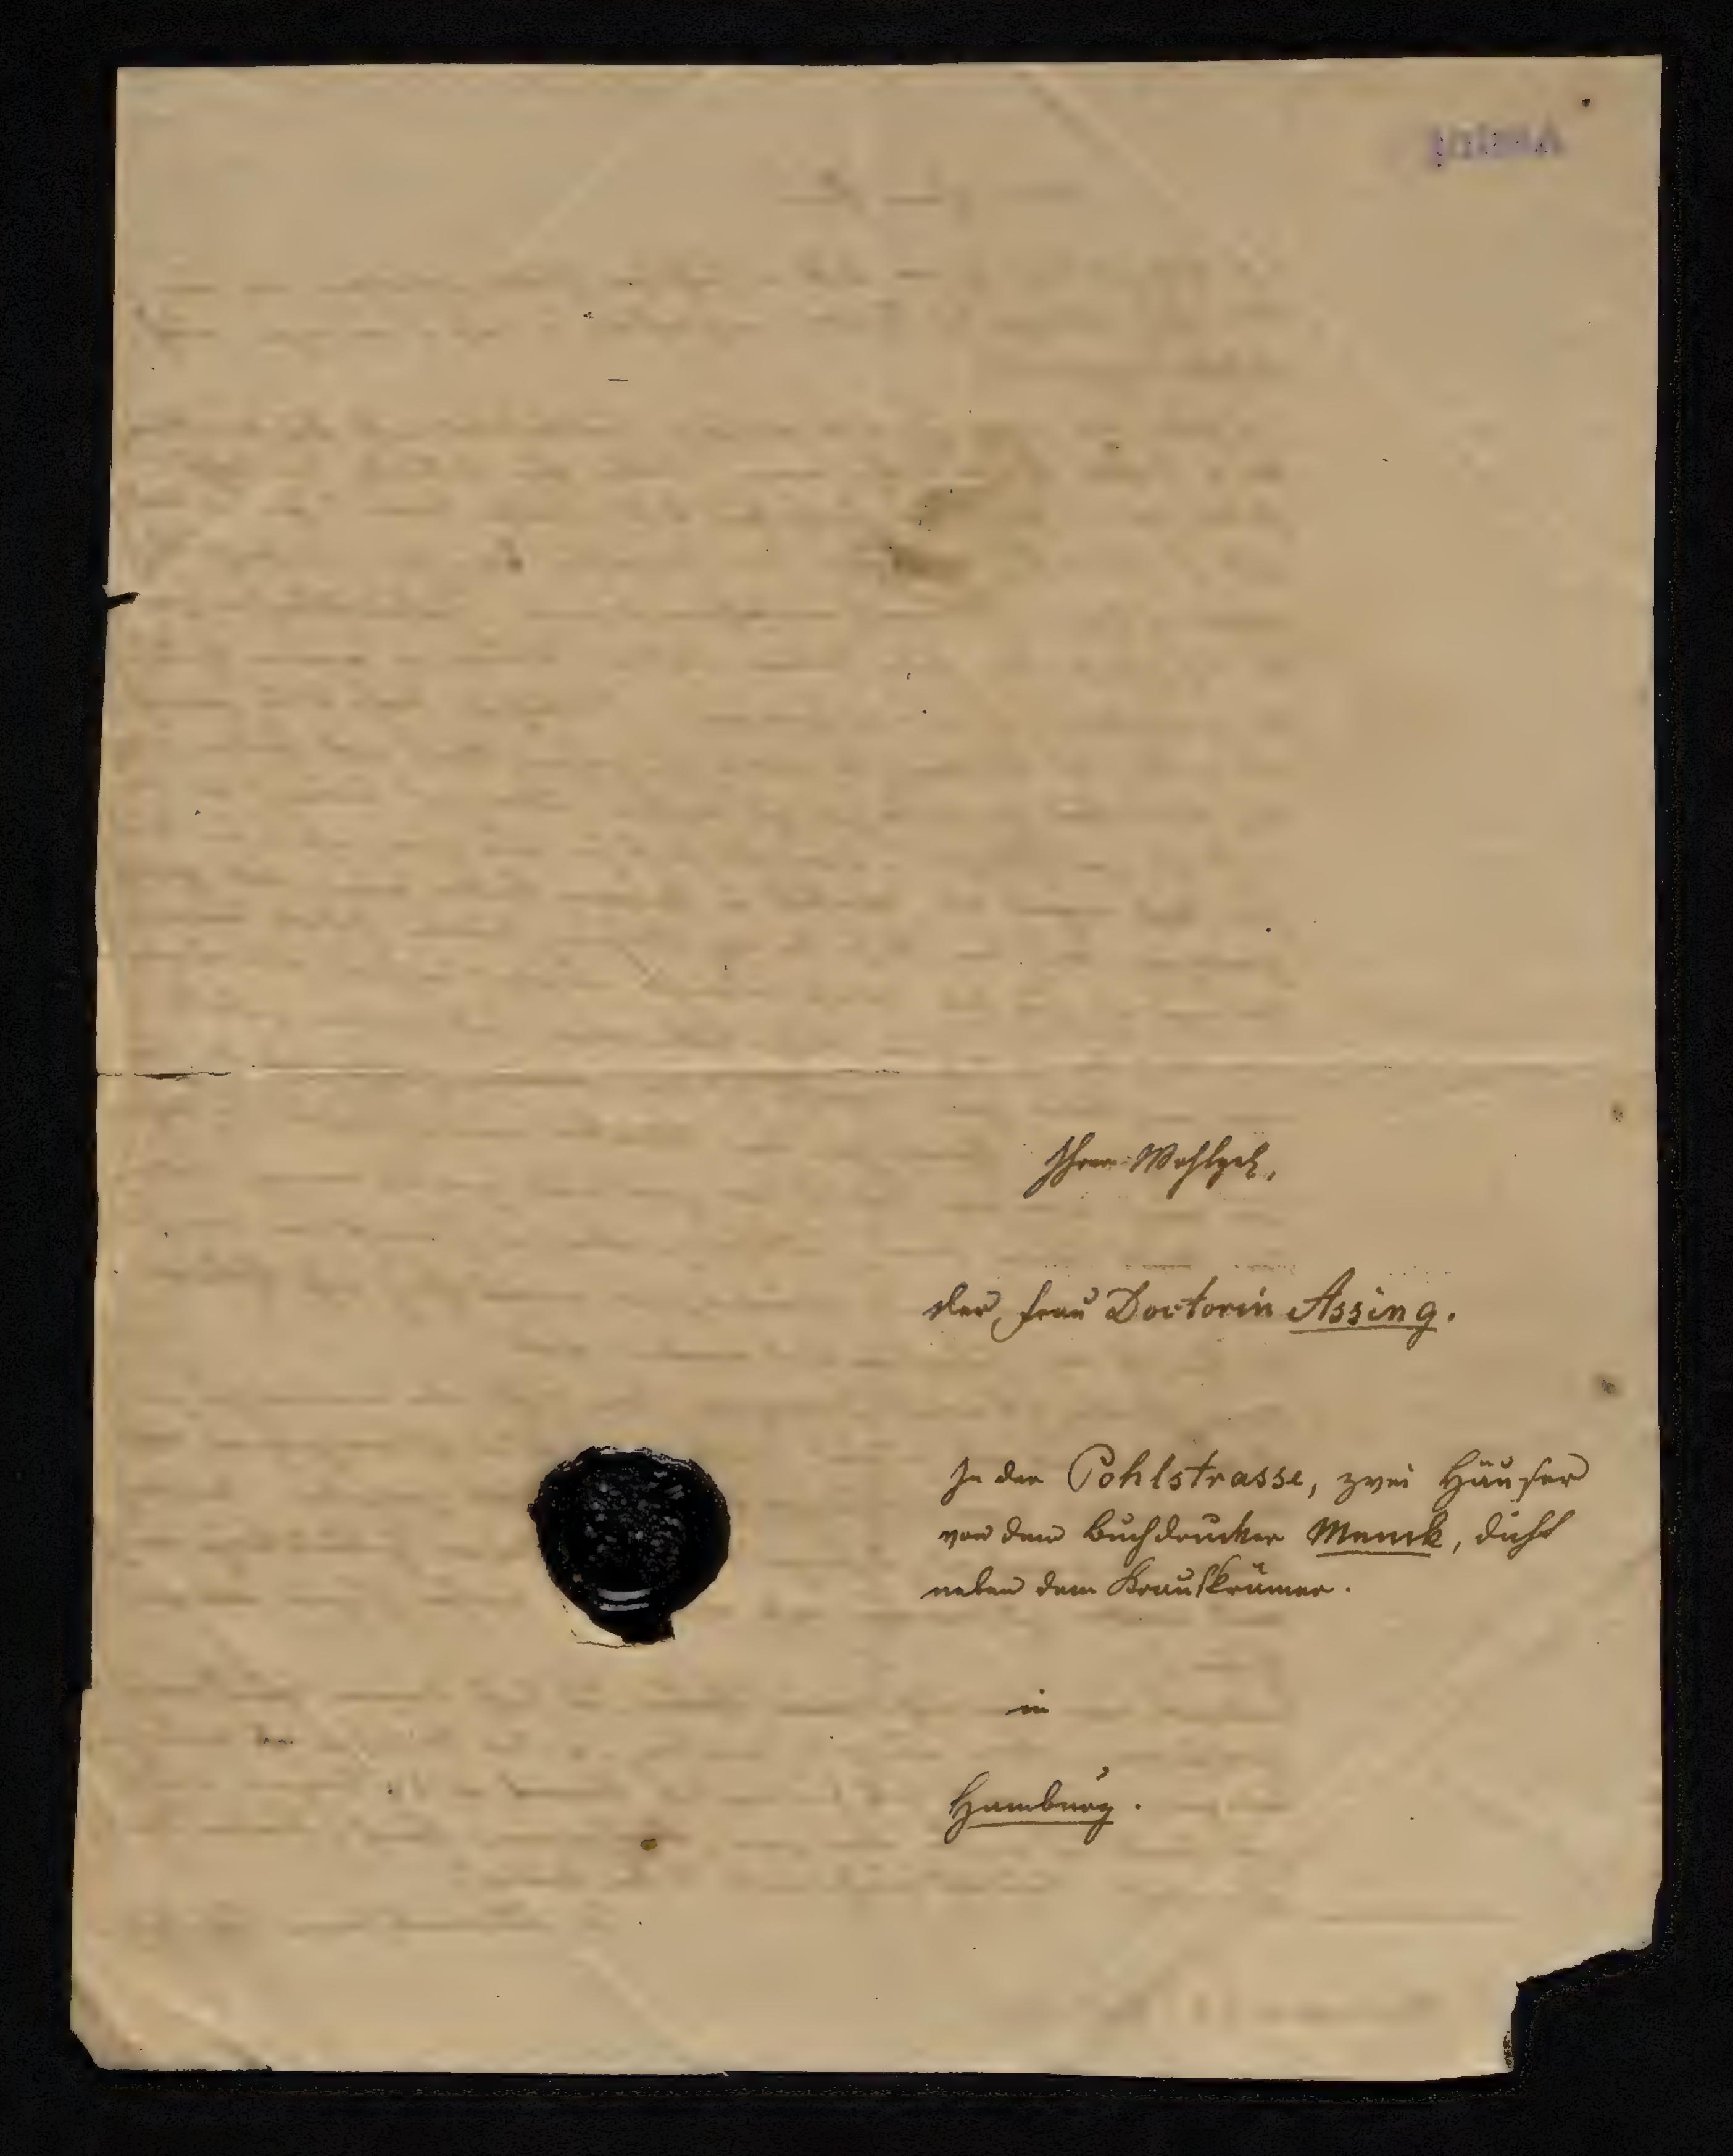 Ihrer Wohlgeb,
der Frau Doctorin Assing.
In der Pohlstrasse, zwei Häuser
von dem Buchdrucker Menck, dicht
neben dem Krautkrämer.
in
Hamburg.